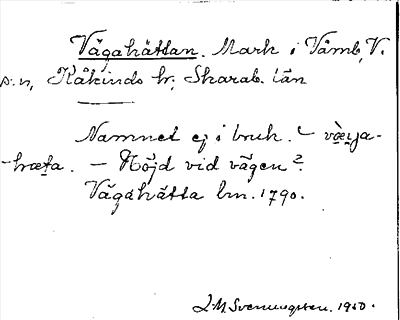 Vägahättan. Mark i Våmb, V.
s:n, Kåkinds hd, Skarab. län
Namnet ej i bruk. – 
-hæta. – Höjd vid vägen?
Vägahätta lm. 1790.
J. M. Svenungsson. 1950.